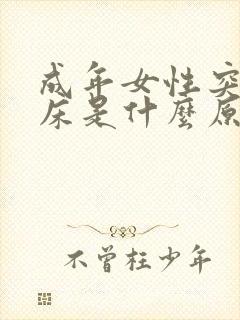 成年女性突
床是什麼原
不曾枉少年